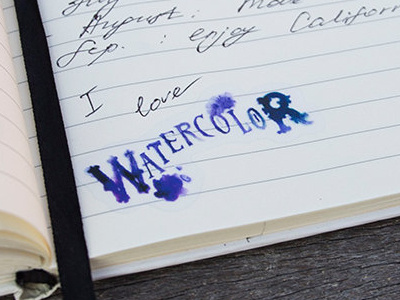 August:
Sep. : enjoy Californ
I love
WATERCOLOR